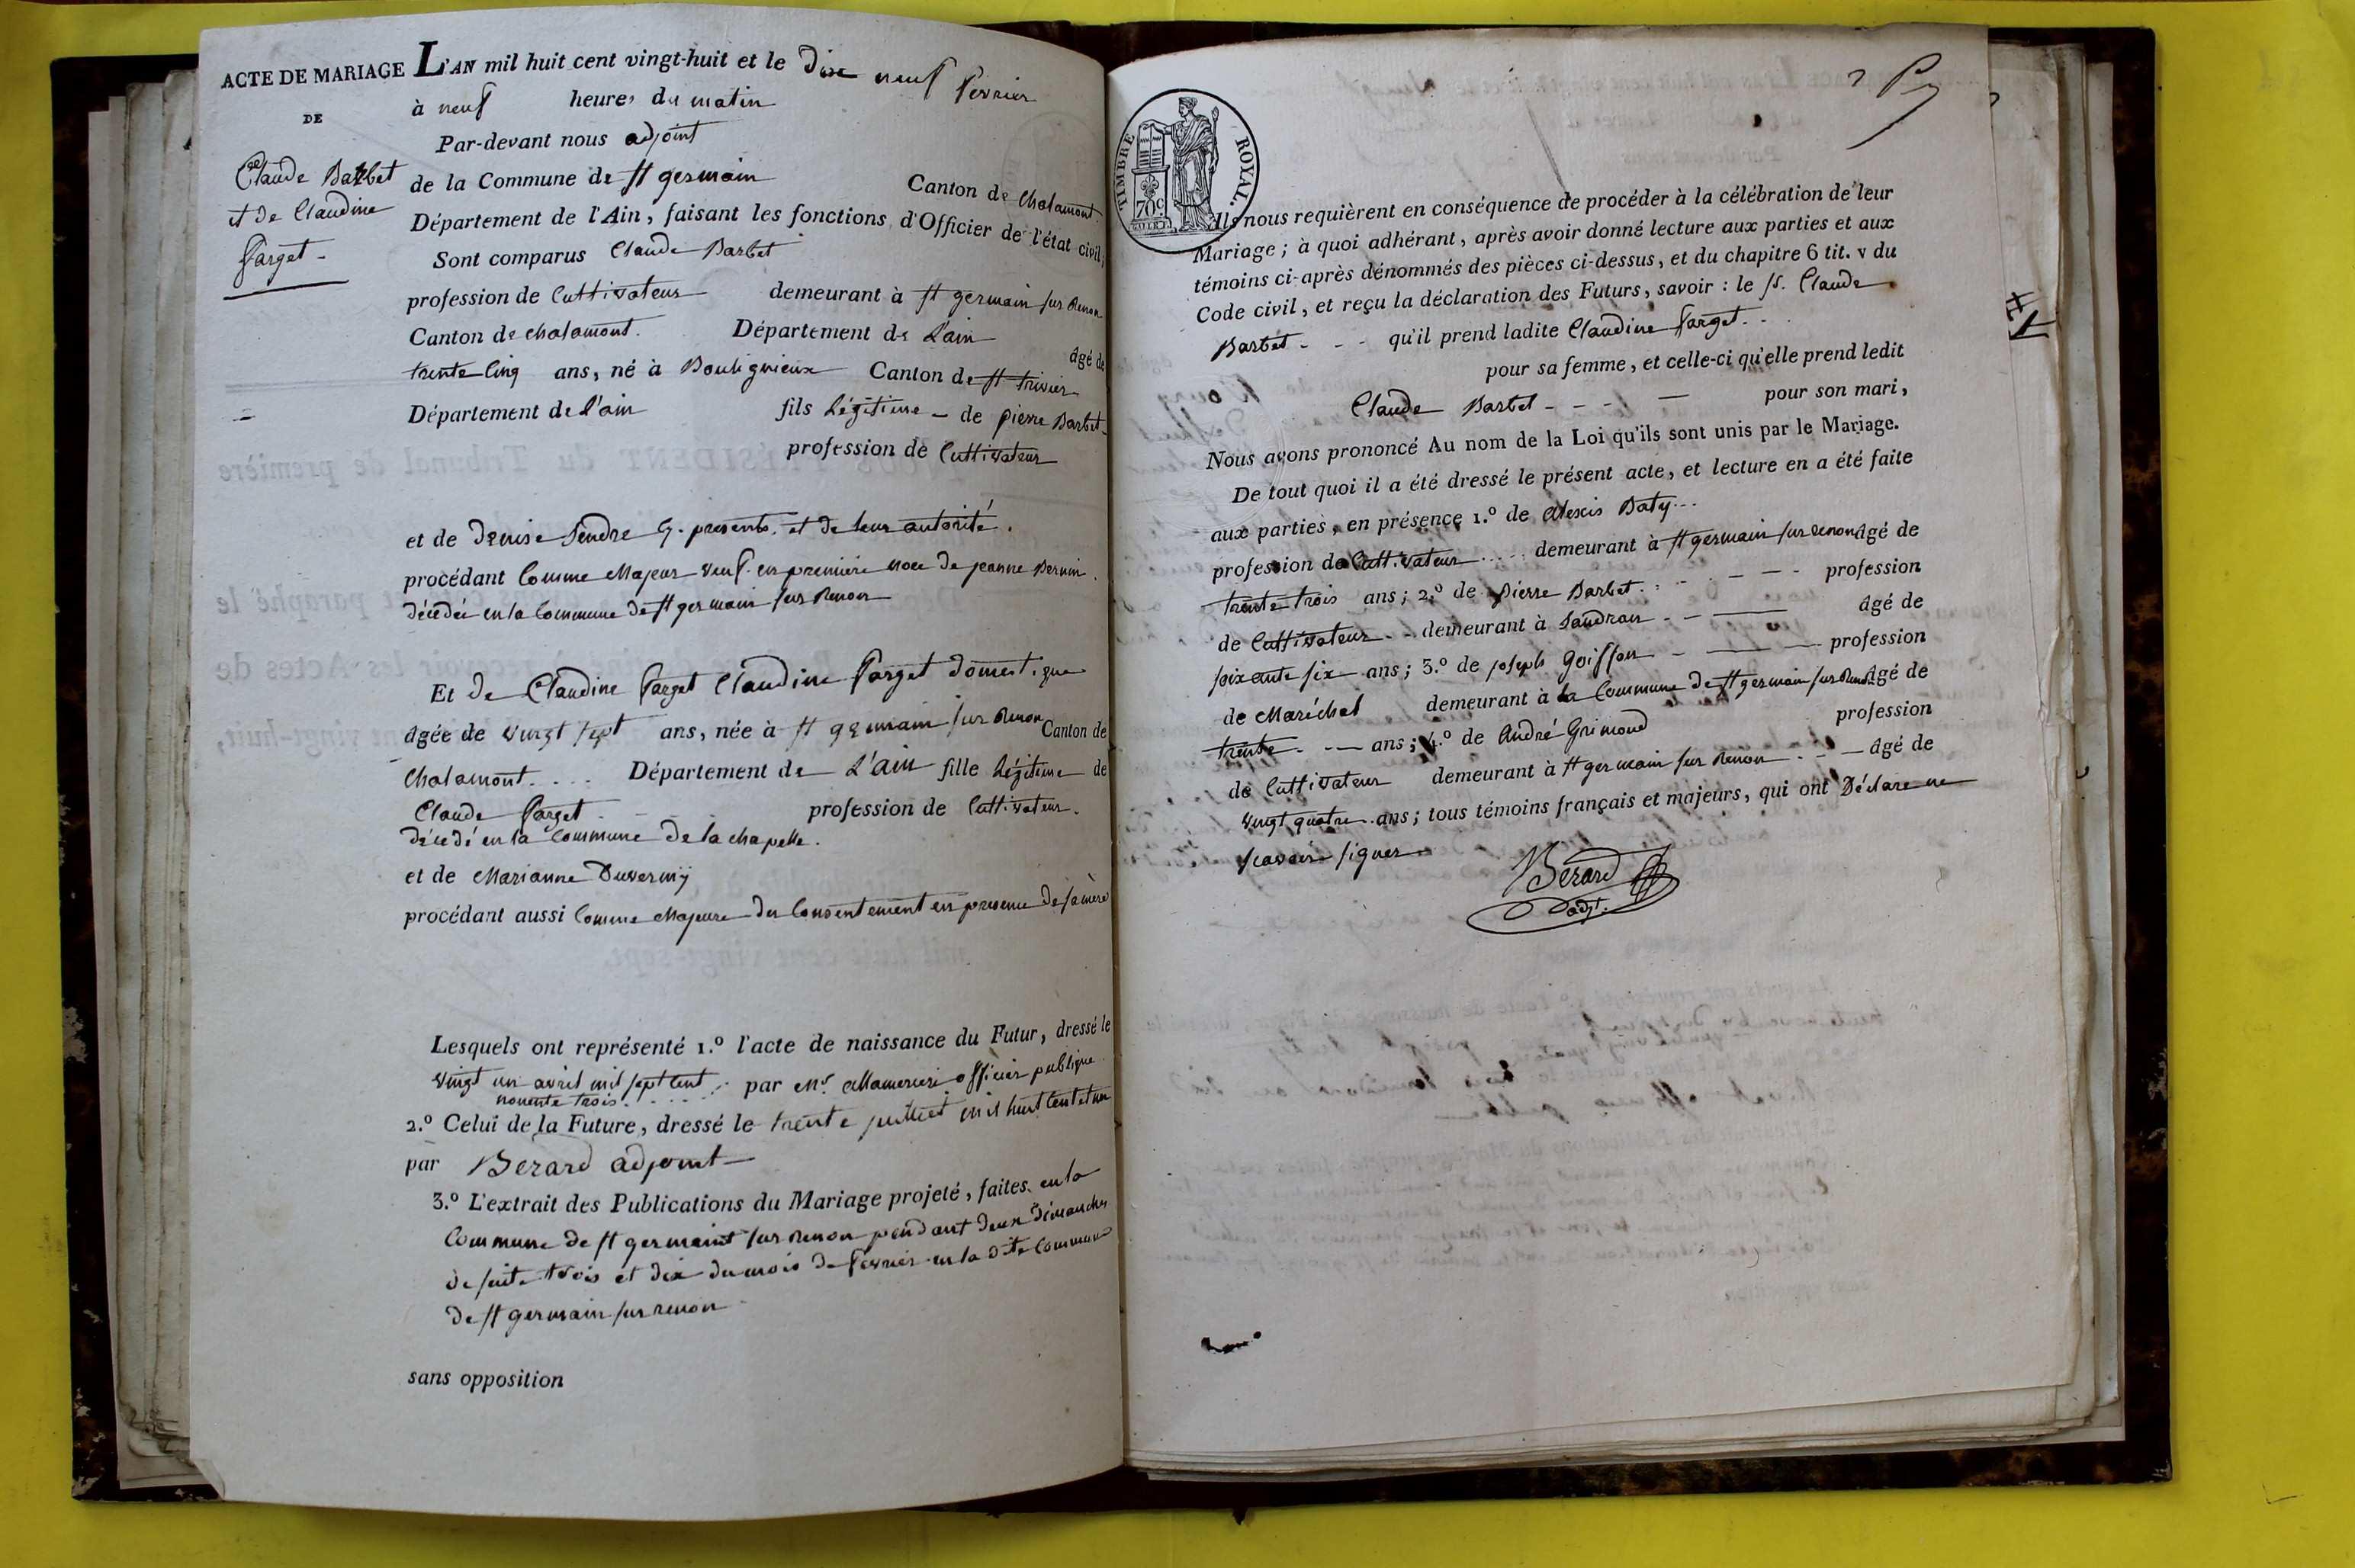 ACTE DE MARIAGE L'AN mil huit cent vingt-huit et le Dix neuf fevrier
DE
à neuf heures du matin
Par-devant nous adjoint
Claude Barbet
et de Claudine
farget -
de la Commune de St germain Canton de Chalamont
Département de l'Ain, faisant les fonctions d'Officier de l'état civil,
Sont comparus Claude Barbet
profession de Cultivateur demeurant à St germain sur Renon
Canton de chalamont. Département de L'ain âgé de
trente Cinq ans, né à Bouligneux Canton de St trivier
Département de L'ain fils Légitime - de pierre Barbet -
profession de Cultivateur
et de Denise Sendre presents et de leur autorité.
procédant Comme Majeur veuf en première noce de jeanne
décédée en la Commune de St germain sur Renon
Et de Claudine farget Claudine farget domestique
âgée de vingt sept ans, née à St germain sur Renon Canton de
Chalamont. . . . Département de L'ain fille Légitime de
Claude farget profession de Cultivateur.
décédé en la Commune de la chapelle.
et de Marianne Duverny
procédant aussi Comme Majeure du Consentement en presence de sa mère
Lesquels ont représenté 1.º l'acte de naissance du Futur, dressé le
vingt un avril mil sept cent par Mr officier publique
nonente trois
2.º Celui de la Future, dressé le trente juillet mil huit cent et un
par Berard adjoint
3.º L'extrait des Publications du Mariage projeté, faites en la
Commune de St germaint sur Renon pendant deux dimanches
de suite trois et dix du mois de fevrier en la dite Commune
de St germain sur renon
sans opposition
TIMBRE ROYAL.
70c
Ils nous requièrent en conséquence de procéder à la célébration de leur
Mariage ; à quoi adhérant, après avoir donné lecture aux parties et aux
témoins ci-après dénommés des pièces ci-dessus, et du chapitre 6 tit. v du
Code civil, et reçu la déclaration des Futurs, savoir : le Sr. Claude
Barbet - - - qu'il prend ladite Claudine farget - -
pour sa femme, et celle-ci qu'elle prend ledit
Claude Barbet - - - — pour son mari,
Nous avons prononcé Au nom de la Loi qu'ils sont unis par le Mariage.
De tout quoi il a été dressé le présent acte, et lecture en a été faite
aux parties, en présence 1.º de Alexis Baty...
profession de Cultivateur . . . . demeurant à St germain sur renon âgé de
trente trois ans ; 2.º de Pierre Barbet profession
de Cultivateur - - demeurant à Sandran - — âgé de
soixante six ans ; 3.º de joseph Goiffon - — profession
de Maréchal demeurant à la Commune de St germain sur Renon âgé de
trente - — ans ; 4.º de André Grimoud profession
de Cultivateur demeurant à St germain sur Renon - - — âgé de
vingt quatre ans ; tous témoins français et majeurs, qui ont Déclare ne
scavoir signer
Berard
adjt.